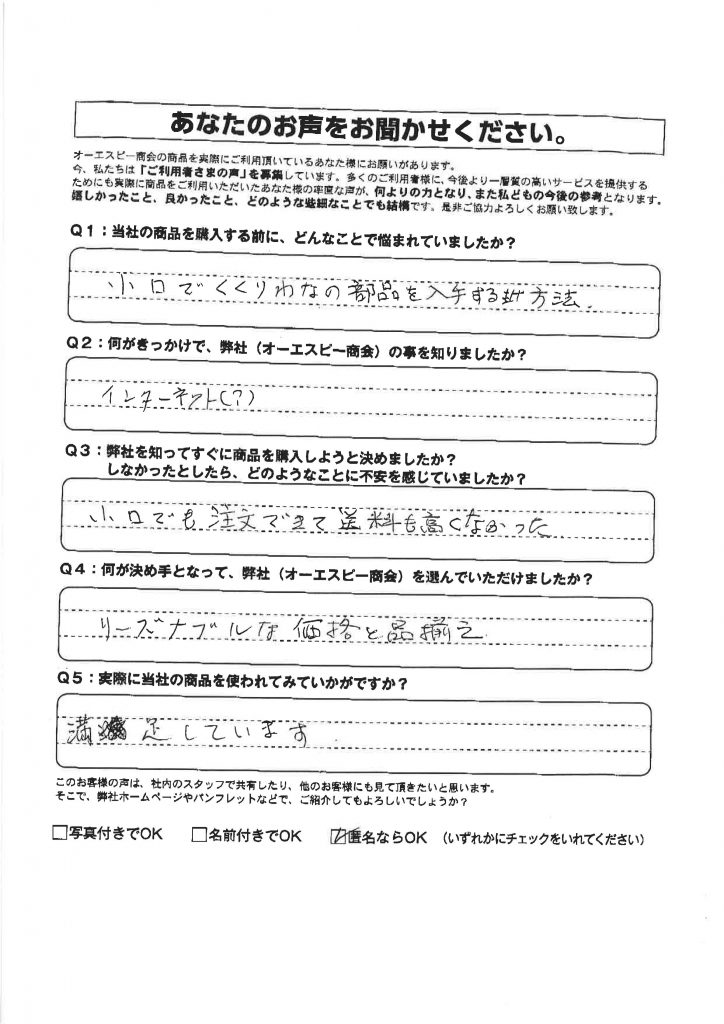 あなたのお声をお聞かせください。
オーエスピー商会の商品を実際にご利用頂いているあなた様にお願いがあります。
今、私たちは「ご利用者さまの声」を募集しています。多くのご利用者様に、今後より一層質の高いサービスを提供する
ためにも実際に商品をご利用いただいたあなた様の率直な声が、何よりの力となり、また私どもの今後の参考となります。
嬉しかったこと、良かったこと、どのような些細なことでも結構です。是非ご協力よろしくお願い致します。
Q1:当社の商品を購入する前に、どんなことで悩まれていましたか?
小口でくくりわなの部品を入手する方法.
Q2:何がきっかけで、弊社(オーエスピー商会)の事を知りましたか?
インターネット(?)
Q3:弊社を知ってすぐに商品を購入しようと決めましたか?
しなかったとしたら、どのようなことに不安を感じていましたか?
小口でも注文できて送料も高くなかった
Q4:何が決め手となって、弊社(オーエスピー商会)を選んでいただけましたか?
リーズナブルな価格と品揃え
Q5:実際に当社の商品を使われてみていかがですか?
満足しています.
このお客様の声は、社内のスタッフで共有したり、他のお客様にも見て頂きたいと思います。
そこで、弊社ホームページやパンフレットなどで、ご紹介してもよろしいでしょうか?
□写真付きでOK □名前付きでOK ☑匿名ならOK (いずれかにチェックをいれてください)